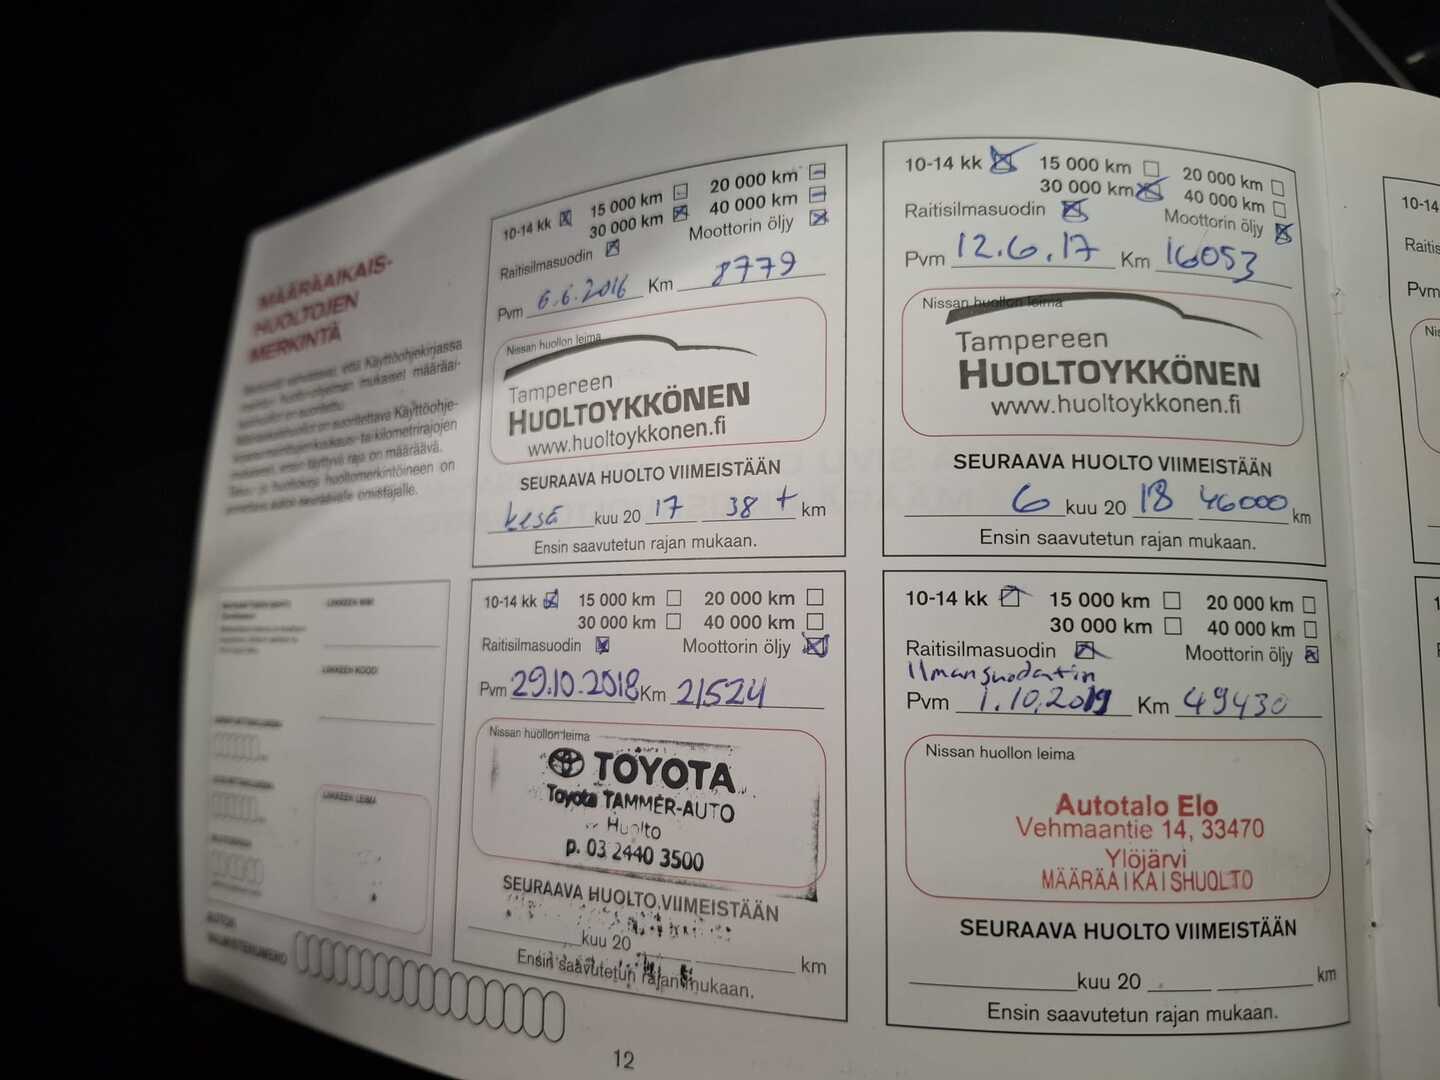 MÄÄRÄAIKAIS-
HUOLTOJEN
MERKINTÄ
että Käyttöohjekirjassa
mukaiset määräai-
on suoritettu
on suoritettava Käyttöohje-
tai kilometrirajojen
mukaisesti, ensin täyttyvä raja on määräävä.
Takuu- ja huoltokirja huoltomerkintöineen on
annettava auton seuraavalle omistajalle.
LIIKKEEN NIMI
LIIKKEEN KOODI
LIIKKEEN LEIMA
AUTON
VALMISTENUMERO
10-14 kk 15 000 km 20 000 km
30 000 km 40 000 km
Raitisilmasuodin Moottorin öljy
Pvm 6.6.2016 Km 8779
Nissan huollon leima
Tampereen
HUOLTOYKKÖNEN
www.huoltoykkonen.fi
SEURAAVA HUOLTO VIIMEISTÄÄN
kesä kuu 20 17 38 t km
Ensin saavutetun rajan mukaan.
10-14 kk 15 000 km 20 000 km
30 000 km 40 000 km
Raitisilmasuodin Moottorin öljy
Pvm 12.6.17 Km 16053
Nissan huollon leima
Tampereen
HUOLTOYKKÖNEN
www.huoltoykkonen.fi
SEURAAVA HUOLTO VIIMEISTÄÄN
6 kuu 20 18 46000 km
Ensin saavutetun rajan mukaan.
10-14 kk 15 000 km 20 000 km
30 000 km 40 000 km
Raitisilmasuodin Moottorin öljy
Pvm 29.10.2018 Km 21524
Nissan huollon leima
TOYOTA
Toyota TAMMER-AUTO
Huolto
p. 03 2440 3500
SEURAAVA HUOLTO VIIMEISTÄÄN
kuu 20 km
Ensin saavutetun rajan mukaan.
10-14 kk 15 000 km 20 000 km
30 000 km 40 000 km
Raitisilmasuodin Moottorin öljy
Ilmansuodatin
Pvm 1.10.2019 Km 49430
Nissan huollon leima
Autotalo Elo
Vehmaantie 14, 33470
Ylöjärvi
MÄÄRÄAIKAISHUOLTO
SEURAAVA HUOLTO VIIMEISTÄÄN
kuu 20 km
Ensin saavutetun rajan mukaan.
12
10-14
Raitis
Pvm
Nis